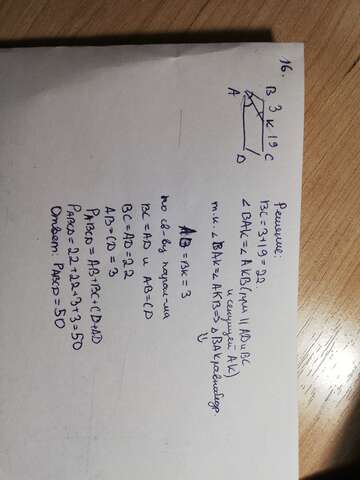 16.
B 3 K 19 C
A
D
Решение:
BC = 3+19 = 22
∠BAK = ∠AKB (при || AD и BC
и секущей AK)
т.к. ∠BAK = ∠AKB => △BAK равнобедр
AB = BK = 3
по св-ву парал-ма
BC = AD и AB = CD
BC = AD = 22
AB = CD = 3
PABCD = AB + BC + CD + AD
PABCD = 22 + 22 + 3 + 3 = 50
Ответ: PABCD = 50